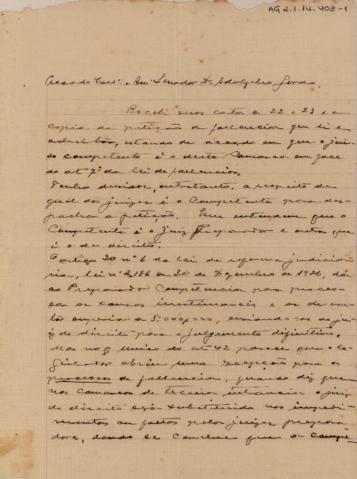 AG 2.1.14.403-1
Presado Coll.ª e Am.º Senador Dr Adolpho Gordo
Recebi suas cartas de 22 e 23 e a
copia da petição de fallencia que li e
estando de accordo em que o jui-
zo competente é o desta Comarca em face
do art 7º da lei de fallencias.
Tenho duvidas, entretanto, a respeito de
qual dos juizes é o Competente para des-
pachar a petição. Uns entendem que o
Competente é o juiz Preparador e outros que
é o de direito.
O artigo 20 nº 6 da lei da reforma judicia-
ria, lei nº 2186 de 30 de Dezembro de 1926, dá
ao Preparador Competencia para proces-
sar as causas inestimaveis e as de va-
lor superior a 5:000$000, enviando-as ao ju-
iz de direito para o julgamento difinitivo.
Mas no § unico do art 42 parece que o le-
gislador abriu uma excepção para os
processos de fallencia, quando diz que
nas comarcas de terceira entrancia o juiz
de direito será substituido nos impedi-
mentos ou faltas pelos juizes prepara-
dores, dando se concluir que a compe-